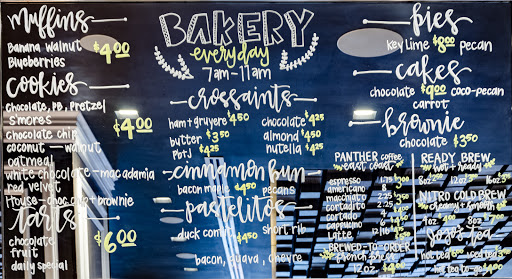 Muffins
Banana walnut
Blueberries
$4.00
Cookies
chocolate, PB, Pretzel
s'mores
chocolate chip
$4.00
coconut - walnut
oatmeal
white chocolate - macadamia
red velvet
House - choc chip + brownie
tarts
chocolate
fruit
daily special
$6.00
BAKERY
everyday
7am-11am
crossaints
ham + gruyere $4.50
butter $3.50
PB+J $4.25
chocolate $4.25
almond $4.50
nutella $4.25
cinnamon bun
bacon maple $4.50 pecans
pastelitos
duck confit $4.50 short rib
bacon, guava, chevre
pies
key lime $8.00 pecan
cakes
chocolate $9.00 coco-pecan
carrot
brownie
chocolate $3.50
PANTHER coffee
east coast
espresso 1.75
americano
macchiato 2.25
cortadito 2.25
cortado
cappucino
Latte 12/16
BREWED-TO-ORDER
french press
READY BREW
hot + ready
8oz 12oz
NITRO COLD BREW
creamy + smooth
7oz
hot tea iced tea